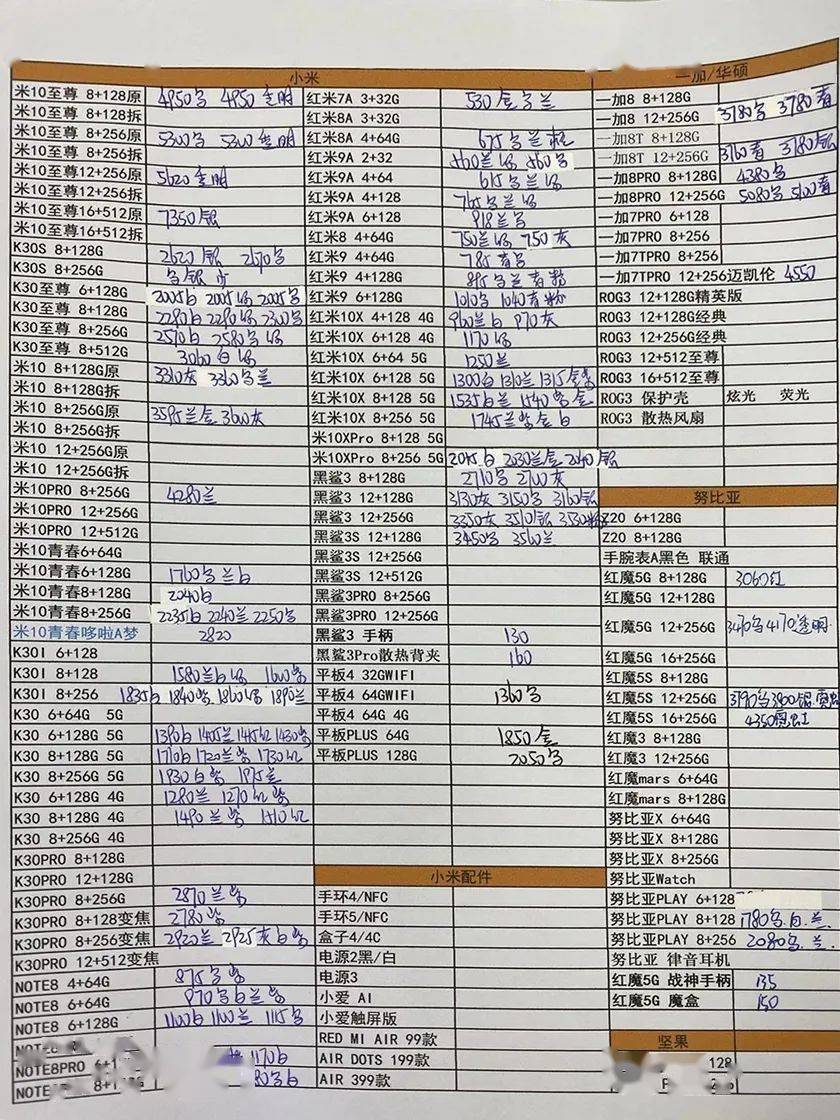 小米
米10至尊 8+128原 4850乌 4850透明
米10至尊 8+128拆
米10至尊 8+256原 5300乌 5300透明
米10至尊 8+256拆
米10至尊12+256原 5620透明
米10至尊12+256拆
米10至尊16+512原 7350银
米10至尊16+512拆
K30S 8+128G 2620银 2670乌
K30S 8+256G 乌银
K30至尊 6+128G 2005白 2005绿 2005乌
K30至尊 8+128G 2280白 2290绿 2300乌
K30至尊 8+256G 2570白 2580乌绿
K30至尊 8+512G 3060白绿
米10 8+128G原 3310灰 3360乌兰
米10 8+128G拆
米10 8+256G原 3595兰金 3600灰
米10 8+256G拆
米10 12+256G原
米10 12+256G拆
米10PRO 8+256G 4280兰
米10PRO 12+256G
米10PRO 12+512G
米10青春6+64G
米10青春6+128G 1760乌兰白
米10青春8+128G 2040白
米10青春8+256G 2235白 2240兰 2250乌
米10青春哆啦A梦 2820
K30I 6+128
K30I 8+128 1580兰白绿 1600紫
K30I 8+256 1835白 1840紫 1860绿 1890兰
K30 6+64G 5G
K30 6+128G 5G 1390白 1405兰 1415红 1430紫
K30 8+128G 5G 1710白 1720兰紫 1730红
K30 8+256G 5G 1930白紫 1975兰
K30 6+128G 4G 1280兰 1270红紫
K30 8+128G 4G 1490兰紫 1510红
K30 8+256G 4G
K30PRO 8+128G
K30PRO 12+128G
K30PRO 8+256G 2870兰紫
K30PRO 8+128变焦 2780紫
K30PRO 8+256变焦 2920兰 2925灰白紫
K30PRO 12+512变焦
NOTE8 4+64G 875乌紫
NOTE8 6+64G 970乌白兰紫
NOTE8 6+128G 1100白 1100兰 1115乌
NOTE8PRO 6+1 1170白
8+128G 80乌白
红米7A 3+32G 530金乌兰
红米8A 3+32G
红米8A 4+64G 675乌兰粉
红米9A 2+32 560兰绿 560乌
红米9A 4+64 615乌兰绿
红米9A 4+128 765乌兰绿
红米9A 6+128 918兰乌
红米8 4+64G 750兰绿 750灰
红米9 4+64G 785青乌
红米9 4+128G 895乌兰青粉
红米9 6+128G 1010乌 1040青粉
红米10X 4+128 4G 960兰白 970灰
红米10X 6+128 4G 1170绿
红米10X 6+64 5G 1250兰
红米10X 6+128 5G 1300白 1310兰 1315金紫
红米10X 8+128 5G 1535白兰 1540紫金
红米10X 8+256 5G 1745兰紫金白
米10XPro 8+128 5G
米10XPro 8+256 5G 2025白 2030兰金 2040银
黑鲨3 8+128G 2710乌 2700灰
黑鲨3 12+128G 3130灰 3150乌 3160银
黑鲨3 12+256G 3350灰 3510银 3530粉
黑鲨3S 12+128G 3450乌 3560兰
黑鲨3S 12+256G
黑鲨3S 12+512G
黑鲨3PRO 8+256G
黑鲨3PRO 12+256G
黑鲨3 手柄 130
黑鲨3Pro散热背夹 160
平板4 32GWIFI
平板4 64GWIFI 1360乌
平板4 64G 4G
平板PLUS 64G 1850金
平板PLUS 128G 2050乌
小米配件
手环4/NFC
手环5/NFC
盒子4/4C
电源2黑/白
电源3
小爱 AI
小爱触屏版
RED MI AIR 99款
AIR DOTS 199款
AIR 399款
一加/华硕
一加8 8+128G
一加8 12+256G 3780乌 3780青
一加8T 8+128G
一加8T 12+256G 3760青 3780银
一加8PRO 8+128G 4380乌
一加8PRO 12+256G 5080乌 5100青
一加7PRO 6+128
一加7PRO 8+256
一加7TPRO 8+256
一加7TPRO 12+256迈凯伦 4550
ROG3 12+128G精英版
ROG3 12+128G经典
ROG3 12+256G经典
ROG3 12+512至尊
ROG3 16+512至尊
ROG3 保护壳 炫光 荧光
ROG3 散热风扇
努比亚
Z20 6+128G
Z20 8+128G
手腕表A黑色 联通
红魔5G 8+128G 3060红
红魔5G 12+128G
红魔5G 12+256G 3490乌 4170透明
红魔5G 16+256G
红魔5S 8+128G
红魔5S 12+256G 3790乌 3900银
红魔5S 16+256G 4350
红魔3 8+128G
红魔3 12+256G
红魔mars 6+64G
红魔mars 8+128G
努比亚X 6+64G
努比亚X 8+128G
努比亚X 8+256G
努比亚Watch
努比亚PLAY 6+128
努比亚PLAY 8+128 1780乌.白.兰
努比亚PLAY 8+256 2080乌.兰.
努比亚 律音耳机
红魔5G 战神手柄 135
红魔5G 魔盒 150
坚果
128